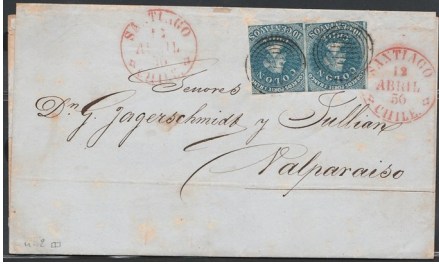 SANTIAGO
12
ABRIL
56
CHILE
COLON
COLON
SANTIAGO
12
ABRIL
56
CHILE
Señores
Dn. G. Jagerschmidt y Jullian
Valparaiso